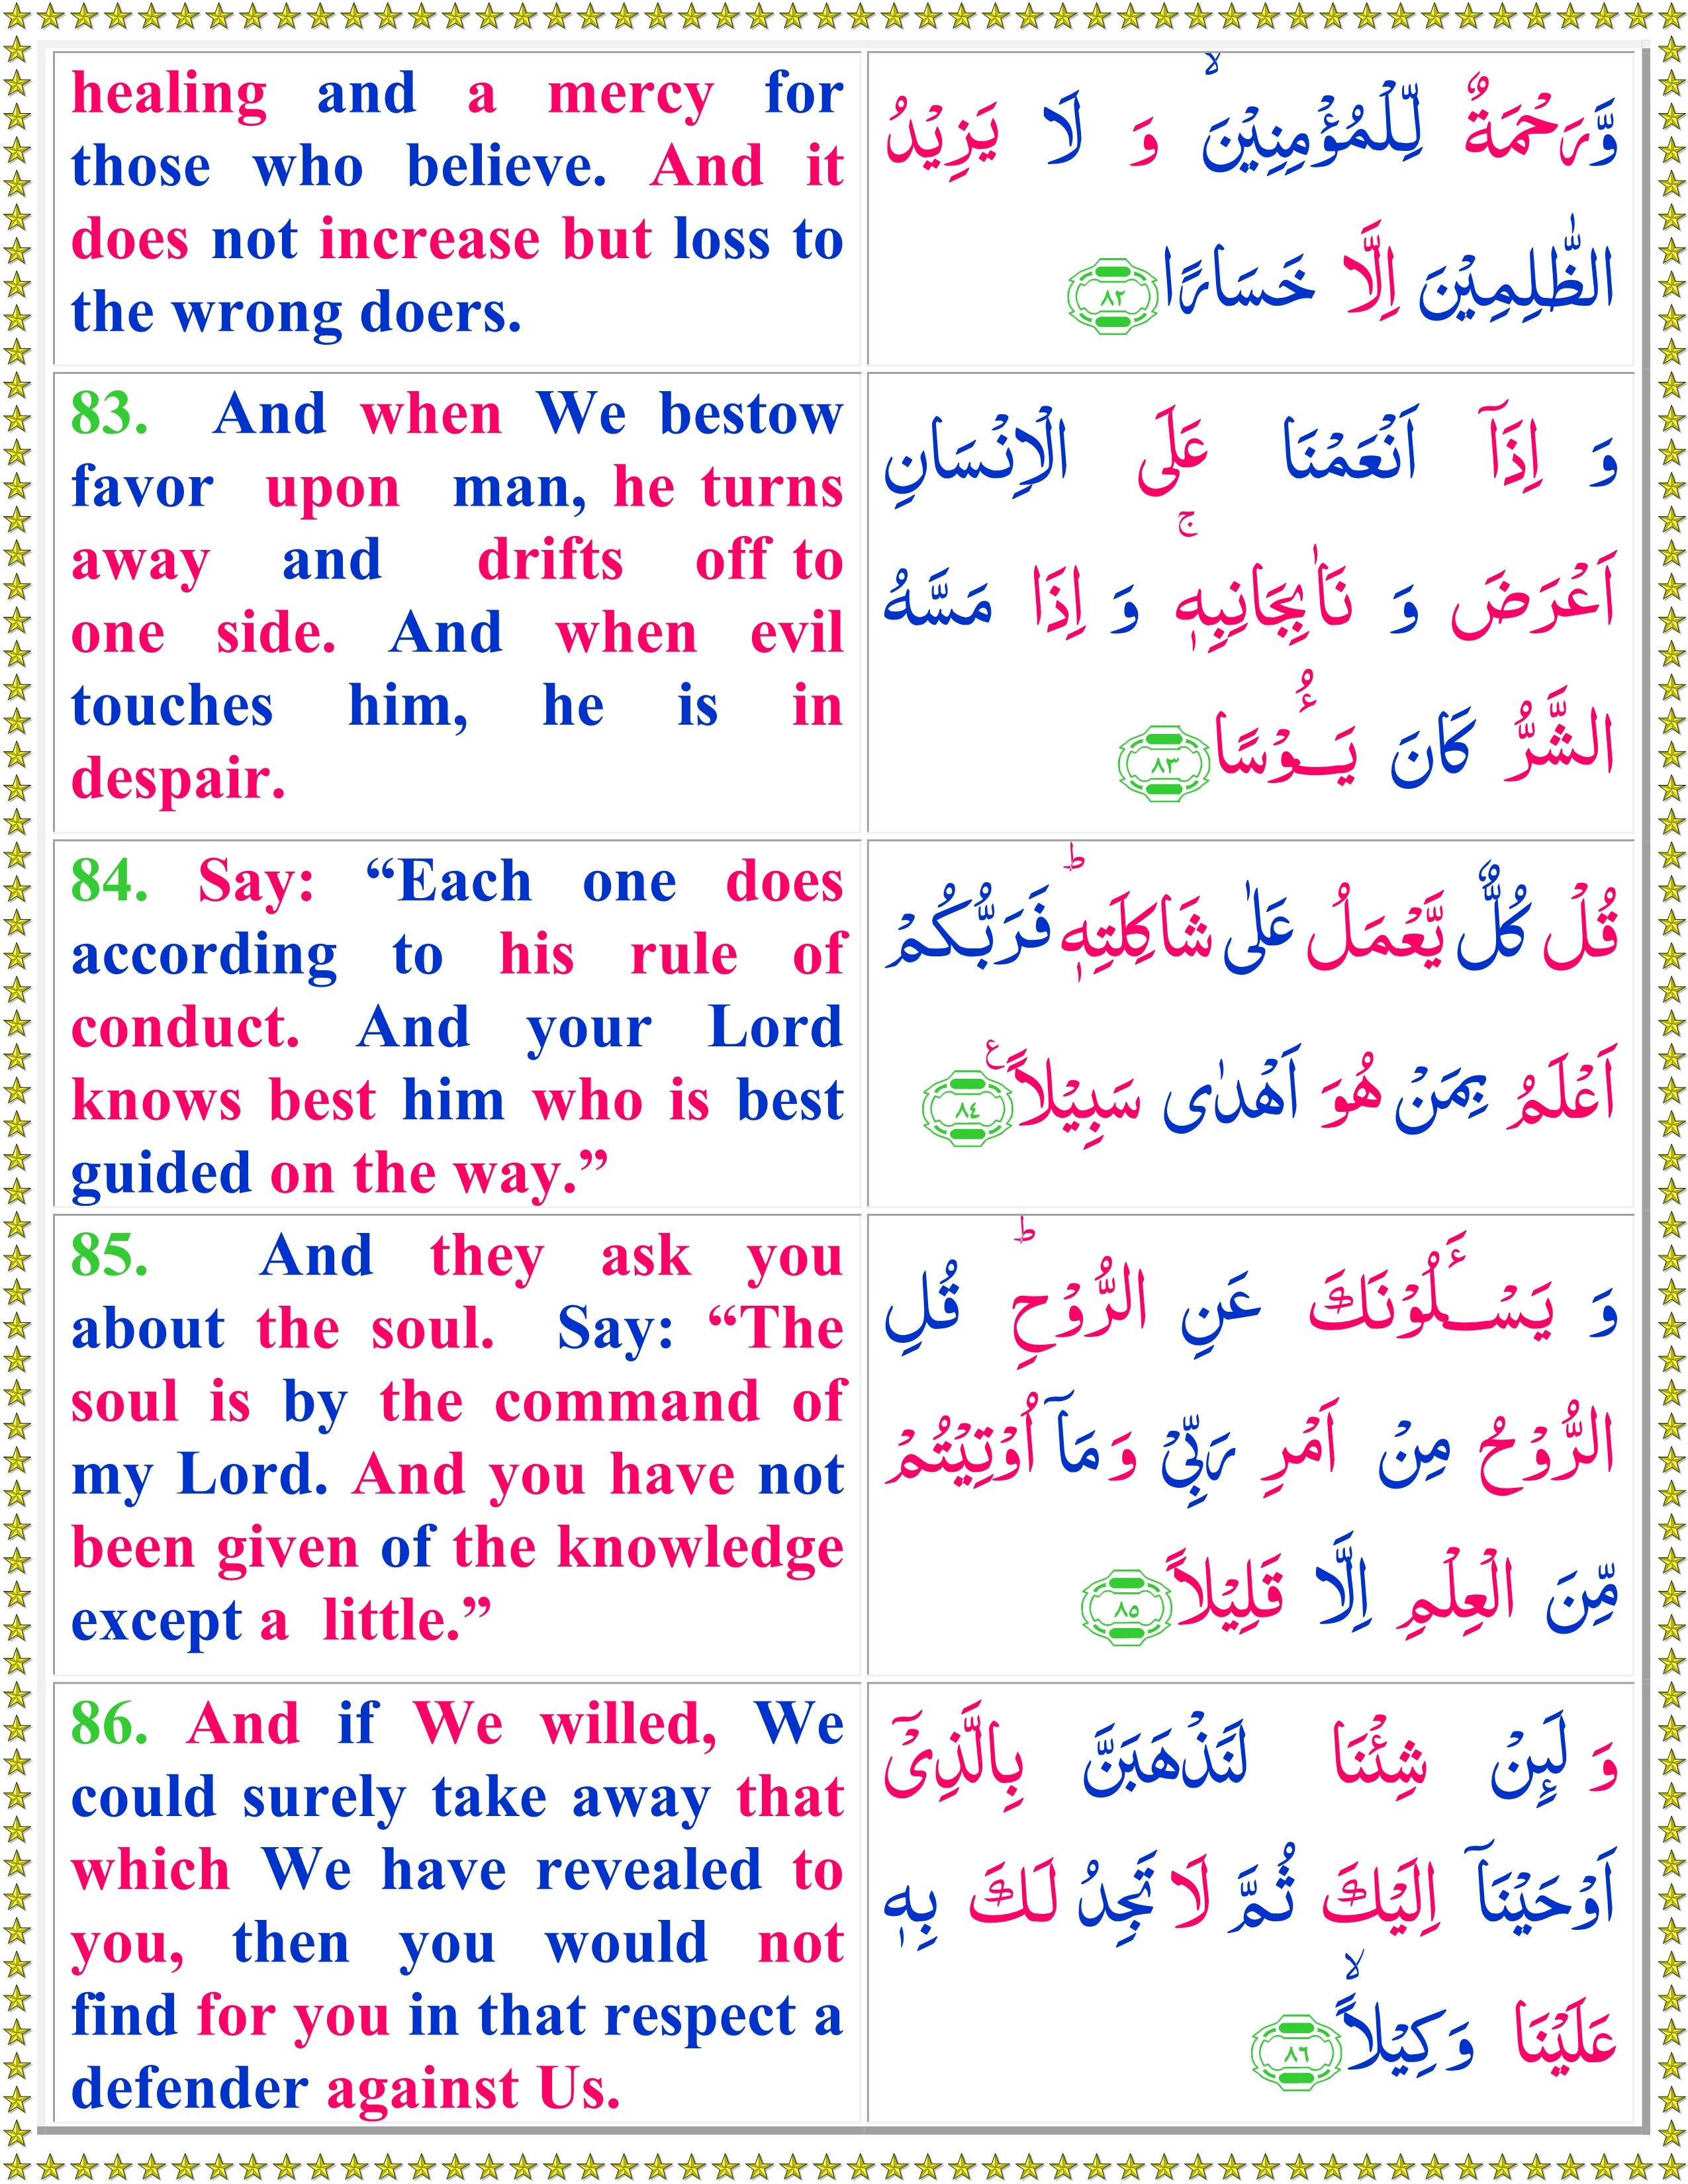 healing and a mercy for
those who believe. And it
does not increase but loss to
the wrong doers.
وَّرَحْمَةٌ لِّلْمُؤْمِنِيْنَ ۙ وَ لَا يَزِيْدُ
الظّٰلِمِيْنَ اِلَّا خَسَارًا ٨٢
83. And when We bestow
favor upon man, he turns
away and drifts off to
one side. And when evil
touches him, he is in
despair.
وَ اِذَاۤ اَنْعَمْنَا عَلَى الْاِنْسَانِ
اَعْرَضَ وَ نَاٰ بِجَانِبِهٖ ۚ وَ اِذَا مَسَّهُ
الشَّرُّ كَانَ يَــُٔوْسًا ٨٣
84. Say: “Each one does
according to his rule of
conduct. And your Lord
knows best him who is best
guided on the way.”
قُلْ كُلٌّ يَّعْمَلُ عَلٰى شَاكِلَتِهٖ ؕ فَرَبُّكُمْ
اَعْلَمُ بِمَنْ هُوَ اَهْدٰى سَبِيْلاً ع ٨٤
85. And they ask you
about the soul. Say: “The
soul is by the command of
my Lord. And you have not
been given of the knowledge
except a little.”
وَ يَسْــَٔلُوْنَكَ عَنِ الرُّوْحِ ؕ قُلِ
الرُّوْحُ مِنْ اَمْرِ رَبِّىْ وَ مَاۤ اُوْتِيْتُمْ
مِّنَ الْعِلْمِ اِلَّا قَلِيْلاً ٨٥
86. And if We willed, We
could surely take away that
which We have revealed to
you, then you would not
find for you in that respect a
defender against Us.
وَ لَٮِٕنْ شِئْنَا لَنَذْهَبَنَّ بِالَّذِىْۤ
اَوْحَيْنَاۤ اِلَيْكَ ثُمَّ لَا تَجِدُ لَكَ بِهٖ
عَلَيْنَا وَكِيْلاً ۙ ٨٦